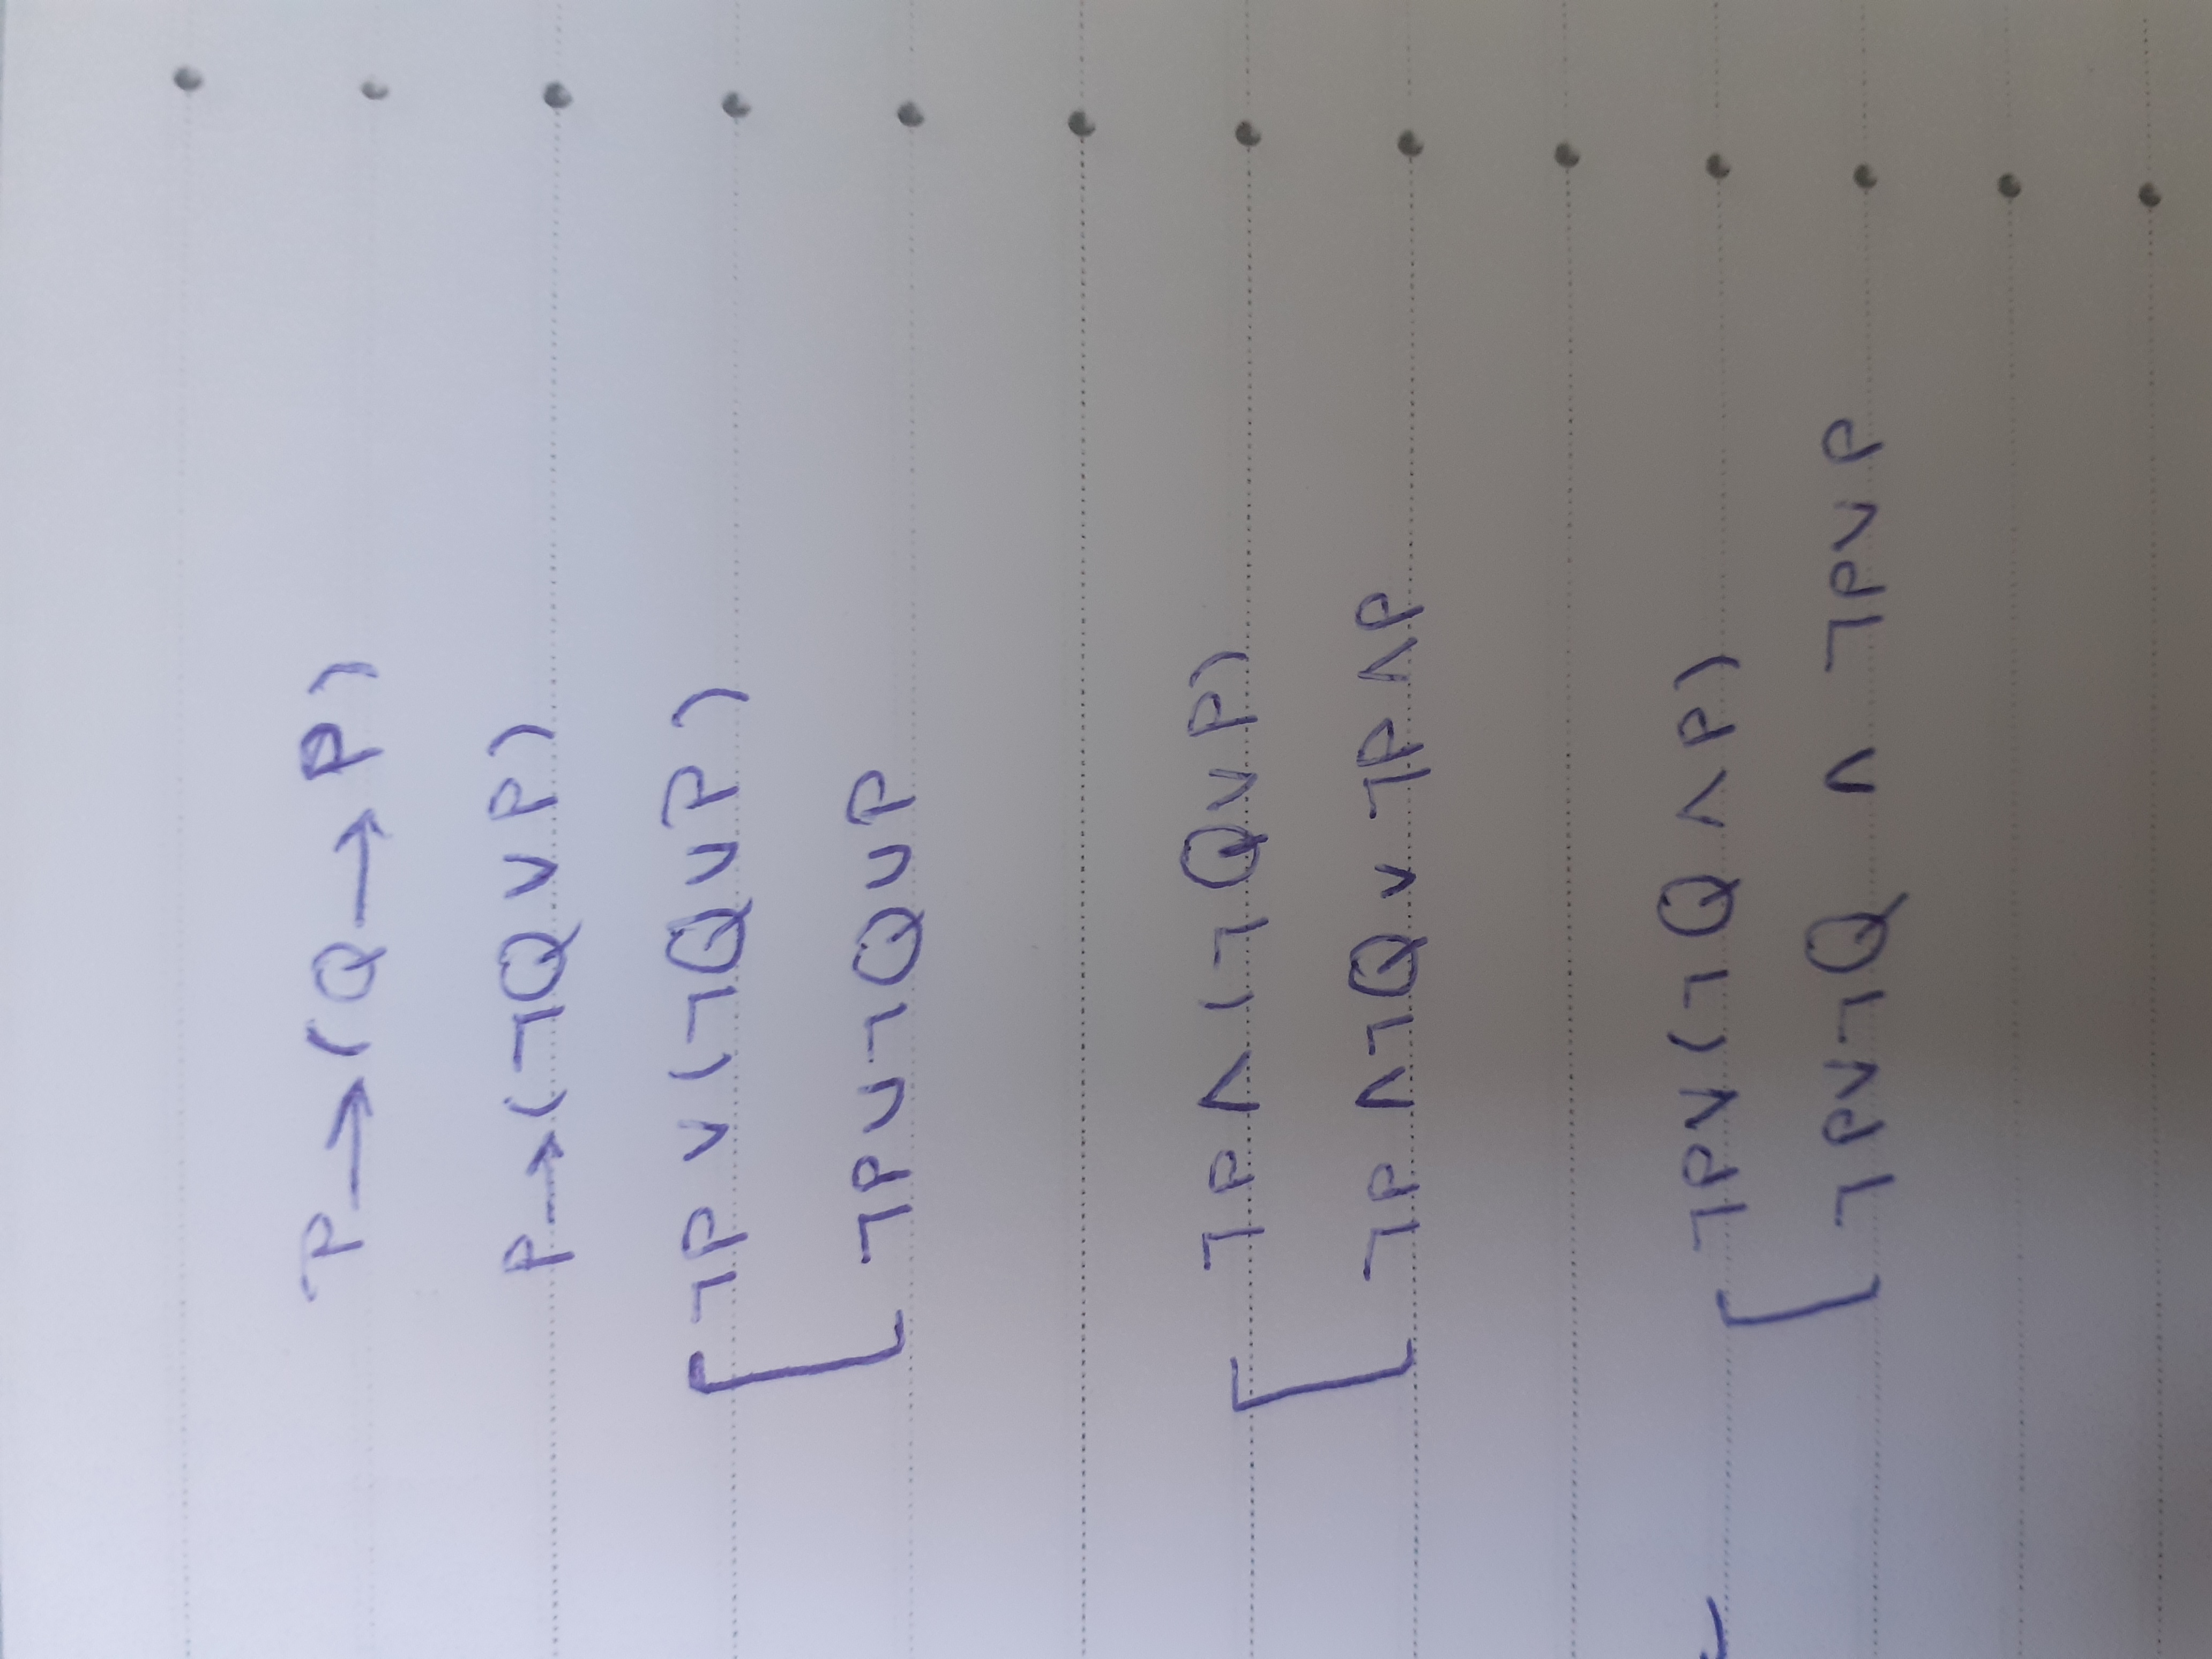 P → ( Q → P )
P → ( ¬Q ∨ P )
¬P ∨ ( ¬Q ∨ P )
¬P ∨ ¬Q ∨ P
¬P ∧ ( ¬Q ∨ P )
¬P ∧ ¬Q ∨ ¬P ∧ P
¬P ∨ ( ¬Q ∧ P )
¬P ∨ ¬Q ∧ ¬P ∨ P